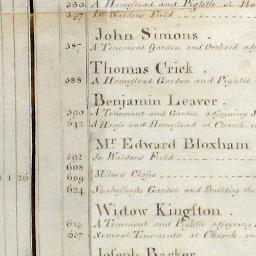 585 A Homestead and Pightle at
597 In Waldens Field
John Simons .
587 A Tenement Garden and Orchard
Thomas Crick .
588 A Homestead Garden and Pightle
Benjamin Leaver .
590 A Tenement and Garden adjoining
642 A House and Homestead at Church
Mr. Edward Bloxham
592 In Waldens Field
608
1 26 669 Milners Close
624 Garden and Building the
Widow Kingston .
625 A Tenement and Pightle adjoining
657 Several Tenements at Church
Joseph Barker